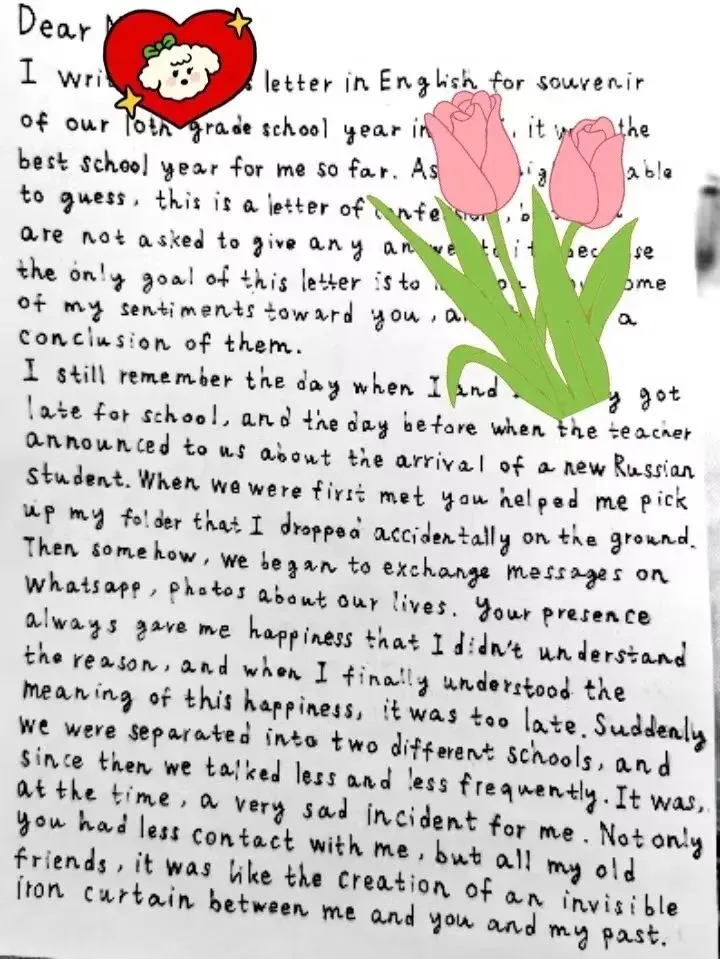 Dear
I letter in English for souvenir
of our 10th grade school year in , it the
best school year for me so far. As able
to guess, this is a letter of
are not asked to give any
the only goal of this letter is to
of my sentiments toward you, a
conclusion of them.
I still remember the day when I and got
late for school, and the day before when the teacher
announced to us about the arrival of a new Russian
student. When we were first met you helped me pick
up my folder that I dropped accidentally on the ground.
Then somehow, we began to exchange messages on
whatsapp, photos about our lives. Your presence
always gave me happiness that I didn't understand
the reason, and when I finally understood the
meaning of this happiness, it was too late. Suddenly
we were separated into two different schools, and
since then we talked less and less frequently. It was,
at the time, a very sad incident for me. Not only
you had less contact with me, but all my old
friends, it was like the creation of an invisible
iron curtain between me and you and my past.